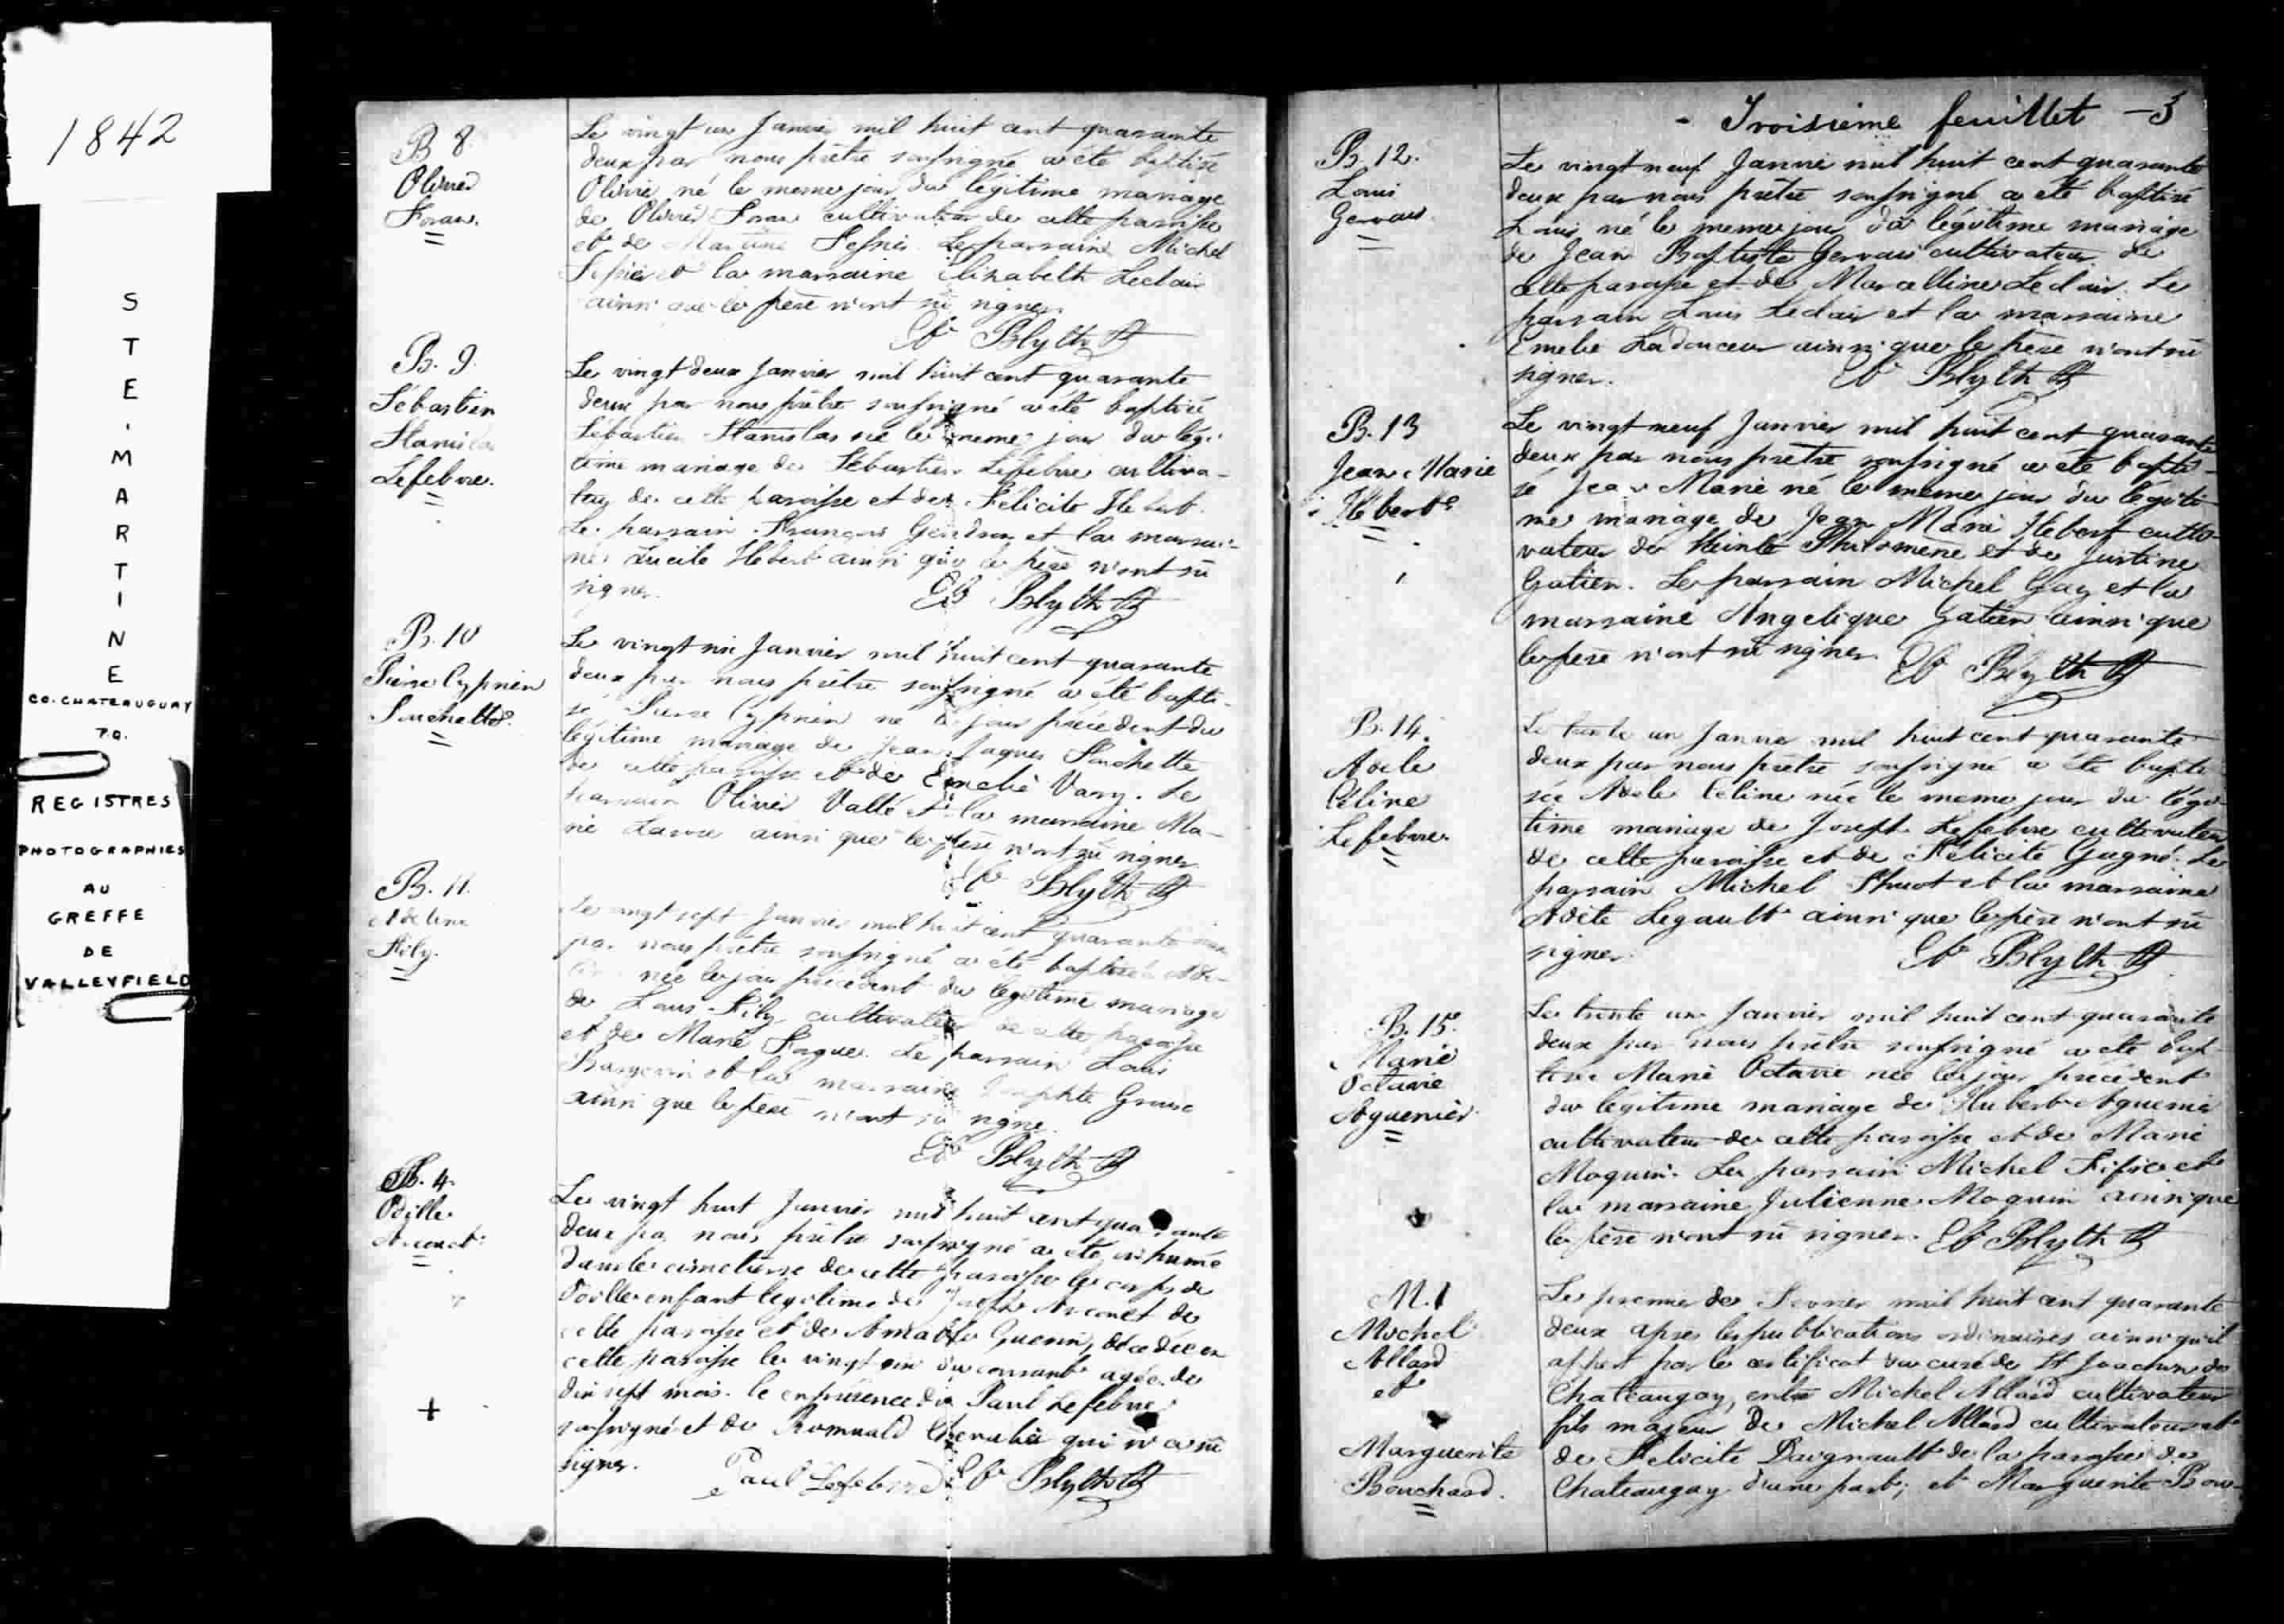 1842
STE. MARTINE
CO. CHATEAUGUAY
P.Q.
REGISTRES
PHOTOGRAPHIES
AU
GREFFE
DE
VALLEYFIELD
B 8.
Olivier
Foran.
Le vingt un Janvier mil huit cent quarante
deux par nous prêtre soussigné a été baptisé
Olivier né le meme jour du légitime mariage
de Olivier Foran cultivateur de cette paroisse
et de Martine Le parrain Michel
et la marraine Elizabeth Leclair
ainsi que le père n'ont sû signer.
Et Blyth Ptr
B. 9.
Sébastien
Stanislas
Lefebvre.
Le vingt deux Janvier mil huit cent quarante
deux par nous prêtre soussigné a été baptisé
Sébastien Stanislas né le meme jour du légi-
time mariage de Sébastien Lefebvre cultiva-
teur de cette paroisse et de Félicité Hebert.
Le parrain François Gendron et la marrai-
ne Lucile Hebert ainsi que le père n'ont sû
signer.
Et Blyth Ptr
B. 10
Pierre Cyprien
Le vingt six Janvier mil huit cent quarante
deux par nous prêtre soussigné a été bapti-
sé Pierre Cyprien né le jour précédent du
légitime mariage de Jean Jaques
de cette paroisse et de Emelie Vary. Le
parrain Olivier Vallé et la marraine Ma-
rie ainsi que le père n'ont sû signer
Et Blyth Ptr
B. 11.
Adeline
Fily.
Le vingt sept Janvier mil huit cent quarante deux
par nous prêtre soussigné a été baptisée Ade-
line née le jour précédent du légitime mariage
de Louis Fily cultivateur de cette paroisse
et de Marie Le parrain Louis
et la marraine
ainsi que le père n'ont sû signer.
Et Blyth Ptr
B. 4.
Odille
Arcouet
Le vingt huit Janvier mil huit cent quarante
deux par nous prêtre soussigné a été inhumé
dans le cimetierre de cette paroisse le corps de
Odille enfant légitime de Joseph Arcouet de
cette paroisse et de Amable Guerin, décédée en
cette paroisse le vingt six du courant agée de
dix sept mois. le en présence de Paul Lefebvre
soussigné et de Romuald Chevalier qui n'a sû
signer.
Paul Lefebvre Et Blyth Ptr
- Troisième feuillet - 3
B. 12.
Louis
Gervais.
Le vingt neuf Janvier mil huit cent quarante
deux par nous prêtre soussigné a été baptisé
Louis né le meme jour du légitime mariage
de Jean Baptiste Gervais cultivateur de
cette paroisse et de Marcelline Leclair. Le
parrain Louis Leclair et la marraine
Emelie Ladouceur ainsi que le père n'ont sû
signer. Et Blyth Ptr
B. 13
Jean Marie
Hebert
Le vingt neuf Janvier mil huit cent quarante
deux par nous prêtre soussigné a été bapti-
sé Jean Marie né le meme jour du légiti-
me mariage de Jean Marie Hebert culti-
vateur de Sainte Philomène et de Justine
Gatien. Le parrain Michel Guy et la
marraine Angelique Gatien ainsi que
le père n'ont sû signer. Et Blyth Ptr
B. 14.
Adele
Céline
Lefebvre
Le trente un Janvier mil huit cent quarante
deux par nous prêtre soussigné a été bapti-
sée Adele Céline née le meme jour du légi-
time mariage de Joseph Lefebvre cultivateur
de cette paroisse et de Félicité Gagné. Le
parrain Michel et la marraine
Adèle Legault ainsi que le père n'ont sû
signer. Et Blyth Ptr
B. 15.
Marie
Octavie
Aguenier
Le trente un Janvier mil huit cent quarante
deux par nous prêtre soussigné a été bap-
tisée Marie Octavie née le jour précédent
du légitime mariage de Hubert Aguenier
cultivateur de cette paroisse et de Marie
Moquin. Le parrain Michel et
la marraine Julienne Moquin ainsi que
le père n'ont sû signer. Et Blyth Ptr
M. 1
Michel
Allard
et
Marguerite
Bouchard.
Le premier de Fevrier mil huit cent quarante
deux apres les publications ordinaires ainsi qu'il
appert par le certificat du curé de St Joachim de
Chateaugay, entre Michel Allard cultivateur
fils majeur de Michel Allard cultivateur et
de Felicité Daignault de la paroisse de
Chateaugay d'une part; et Marguerite Bou-